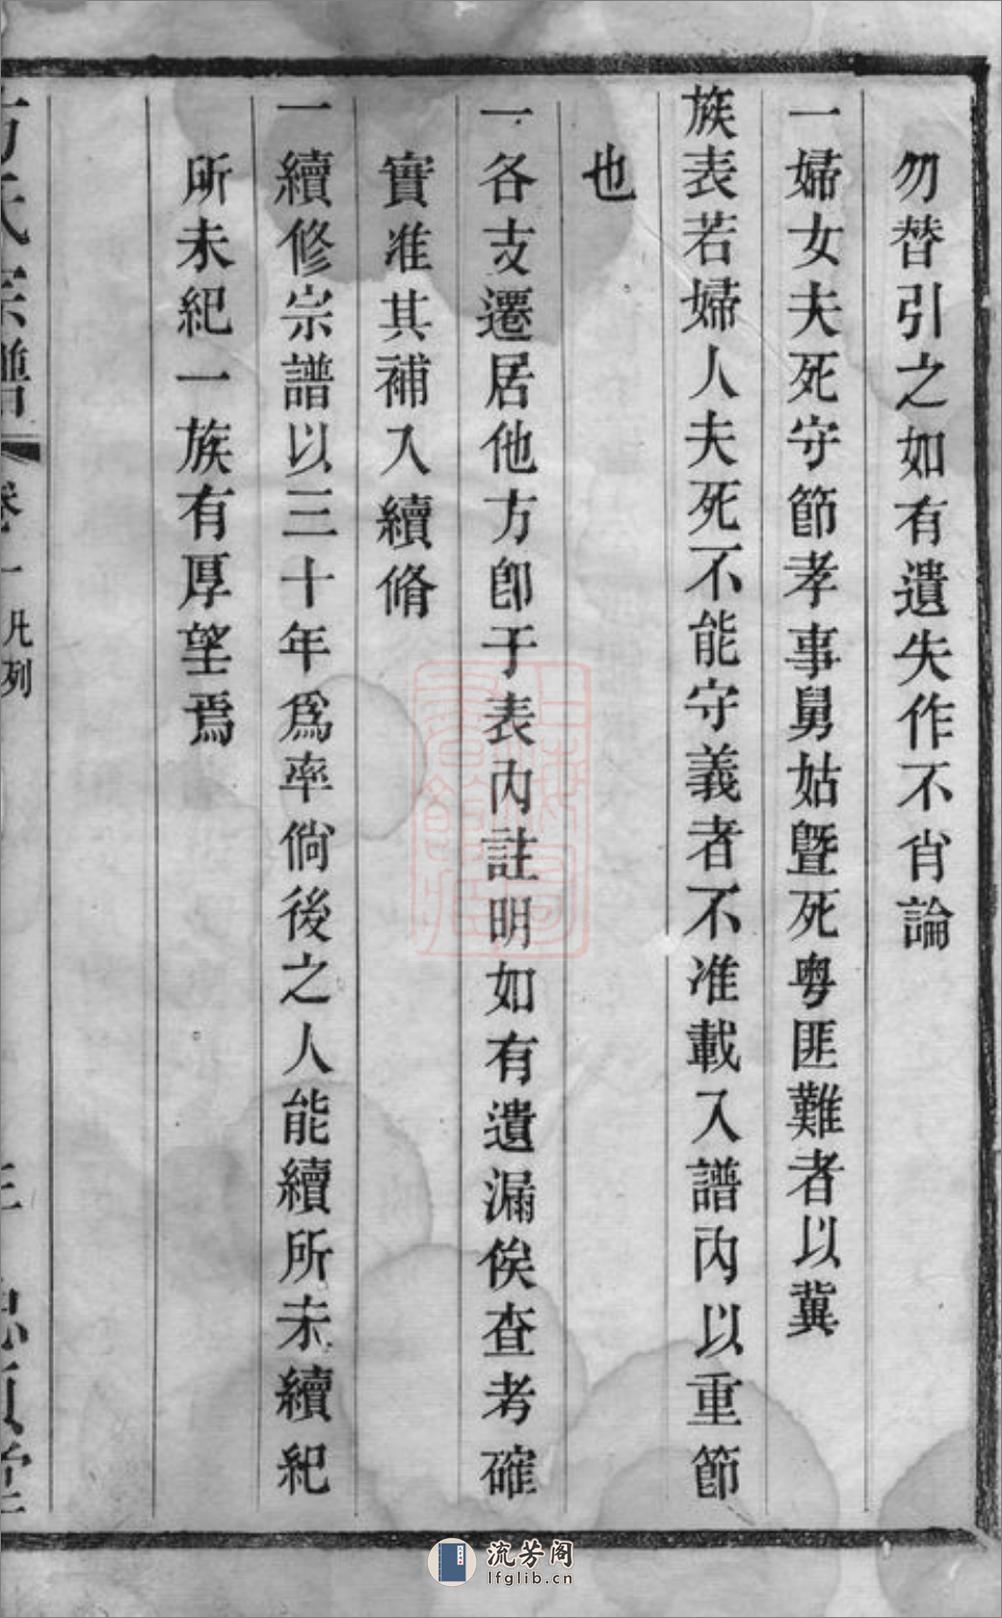 勿替引之如有遺失作不肖論
一婦女夫死守節孝事舅姑曁死粵匪難者以冀
族表若婦人夫死不能守義者不准載入譜內以重節
也
一各支遷居他方卽于表內註明如有遺漏俟查考確
實准其補入續脩
一續修宗譜以三十年爲率倘後之人能續所未續紀
所未紀一族有厚望焉
方氏宗譜 卷一 凡列
流芳阁
lfglib.cn